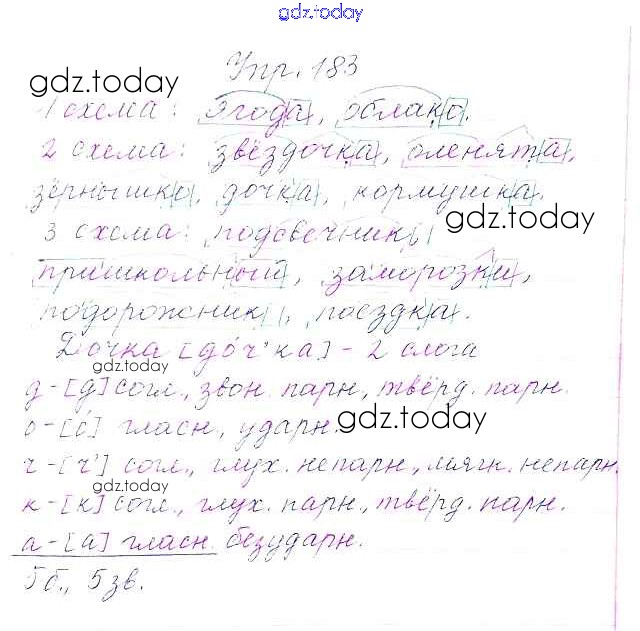 gdz.today
Упр. 183
gdz.today
1 схема: ягода, облако.
2 схема: звёздочка, оленята,
зёрнышко, дочка, кормушка.
gdz.today
3 схема: подсвечник,
пришкольный, заморозки,
подорожник, поездка.
Дочка [до́ч'ка] - 2 слога
gdz.today
д - [д] согл., звон. парн., твёрд. парн.
о - [о́] гласн., ударн.
gdz.today
ч - [ч'] согл., глух. непарн., мягк. непарн.
gdz.today
к - [к] согл., глух. парн., твёрд. парн.
а - [а] гласн. безударн.
5 б., 5 зв.